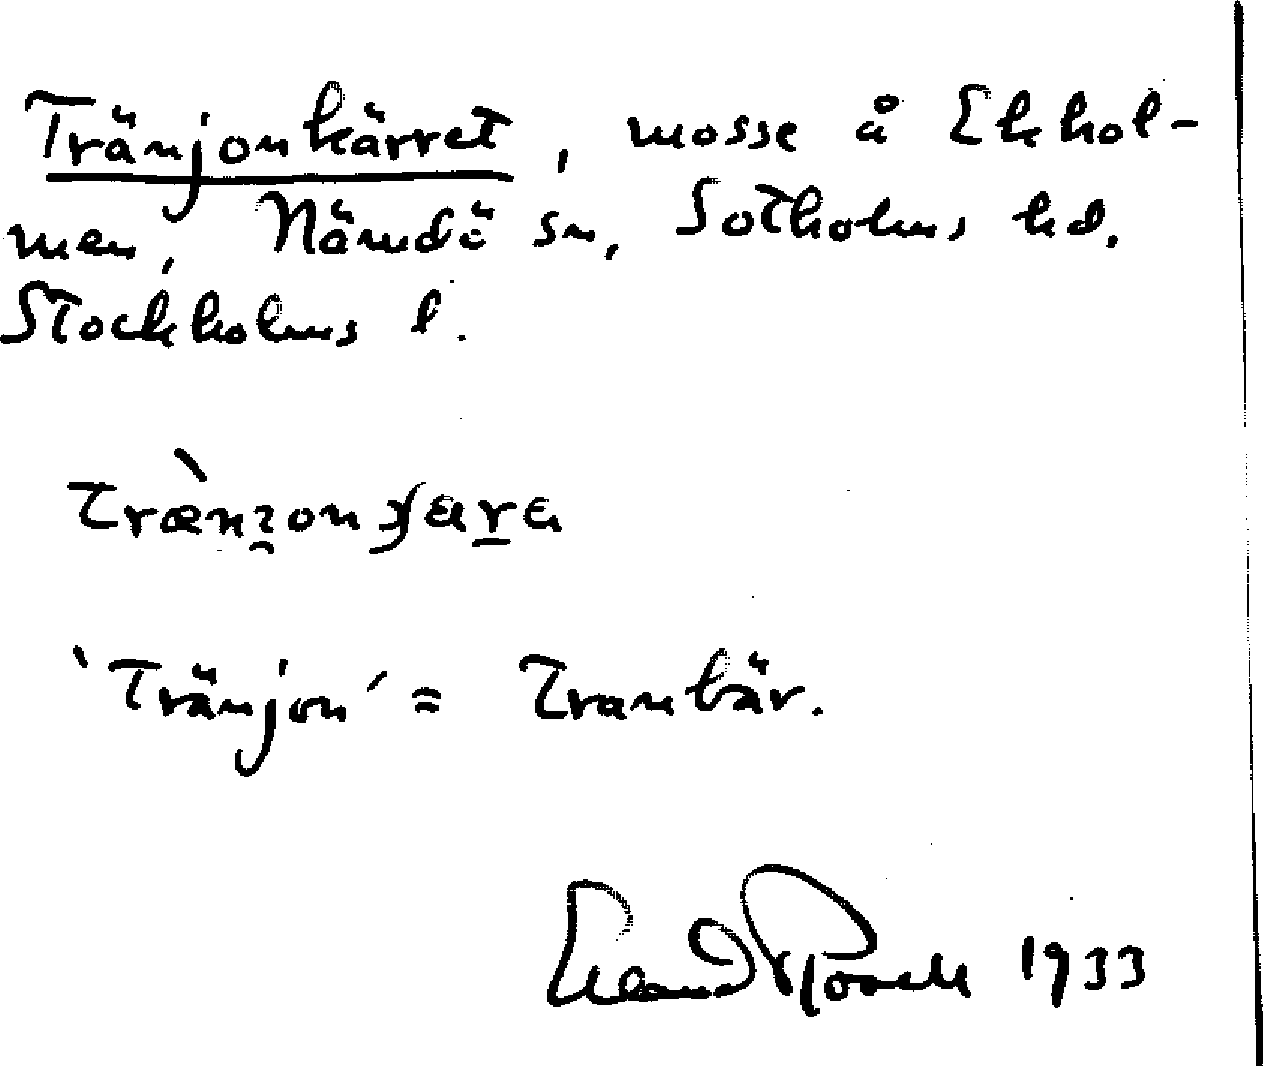 Tränjonkärret, mosse å Ekhol-
men, Nämdö sn, Sotholms hd.
Stockholms l.
'Tränjon' = Tranbär.
1933